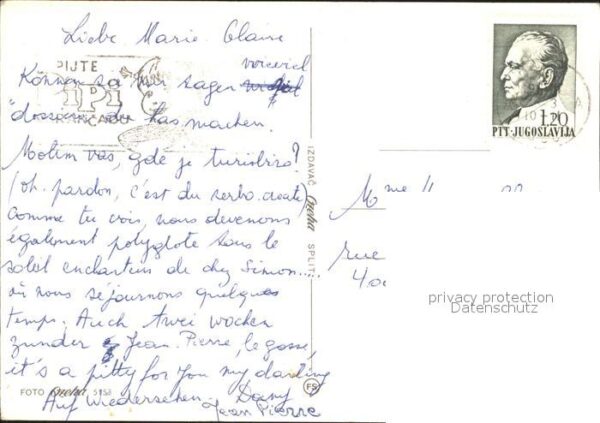 Liebe Marie Claire
PIJTE
Können sa mir sagen vorviel
"dossen du has machen.
Molim vas, gdé je turistiro?
(oh. pardon, c'est du serbo.croate)
comme tu vois, nous devenons
également polyglote sous le
soleil enchanteur de chez Simon...
où nous séjournons quelques
temps. Auch zwei wochen
zunder Jean.Pierre, le gosse,
it's a pitty for you my darling
Auf Wiedersehen. Dany
Jean Pierre
FOTO 5158
IZDAVAČ SPLIT
FS
1.20
PTT·JUGOSLAVIJA
Mme
rue
privacy protection
Datenschutz